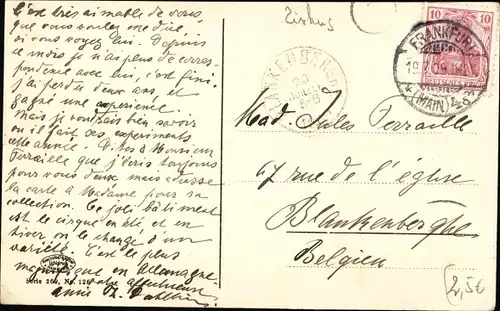 C'est très aimable de vous
que vous voulez me dire
si vous voyez lui. Depuis
ce mois je n'ai plus de corres-
pondence avec lui, c'est fini.
j'ai perdu deux ans, et
gagné une experience.
Mais je voudrais bien savoir
où il fait ses experiments
cette année. Dites à Monsieur
Terraille que j'écris toujours
pour vous deux mais adresse
la carte à Madame pour sa
collection. Ce joli bâtiment
est le cirque en été, et en
hiver on le change d'un
variété. C'est le plus
magnifique en Allemagne
votre affectueuse
Serie 269, No. 126
Zirkus
BLANKENBERGHE
10
10
DEUTSCHES REICH
FRANKFURT
19
09
* (MAIN) 4
Mad. Jules Terraille
47 rue de l'église
Blankenberghe
Belgien
2,5€